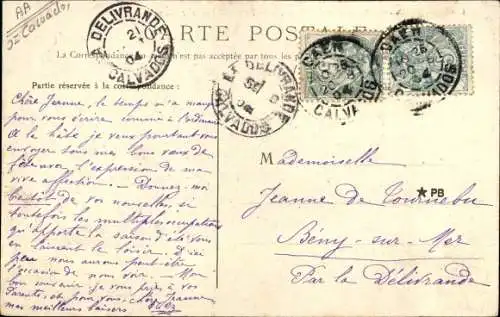 AA
Calvados
LA DELIVRANDE
21
04
CALVADOS
CARTE POSTALE
La Correspondance au n'est pas acceptée par tous les pays
CAEN
26
04
CALVADOS
CAEN
26
4
CALVADOS
LA DELIVRANDE
CALVADOS
Partie réservée à la correspondance :
Chère Jeanne, le temps m'a manqué
pour vous écrire comme à l'ordinaire
A la hâte je veux pourtant vous
envoyer tous mes bons vœux de
fête avec l'expression de ma
vive affection. - Donnez-moi
bientôt de vos nouvelles si
toutefois les multiples occupations
qu'apporte la saison d'été vous
en laissent le loisir. D'ici
peu nous aurons peut-être
l'occasion de nous voir. - Mon
bon souvenir je vous prie à vos
Parents et pour vous, chère Jeanne,
mes meilleurs baisers
Mademoiselle
Jeanne de Tournebu
PB
Bény-sur-Mer
Par la Délivrande